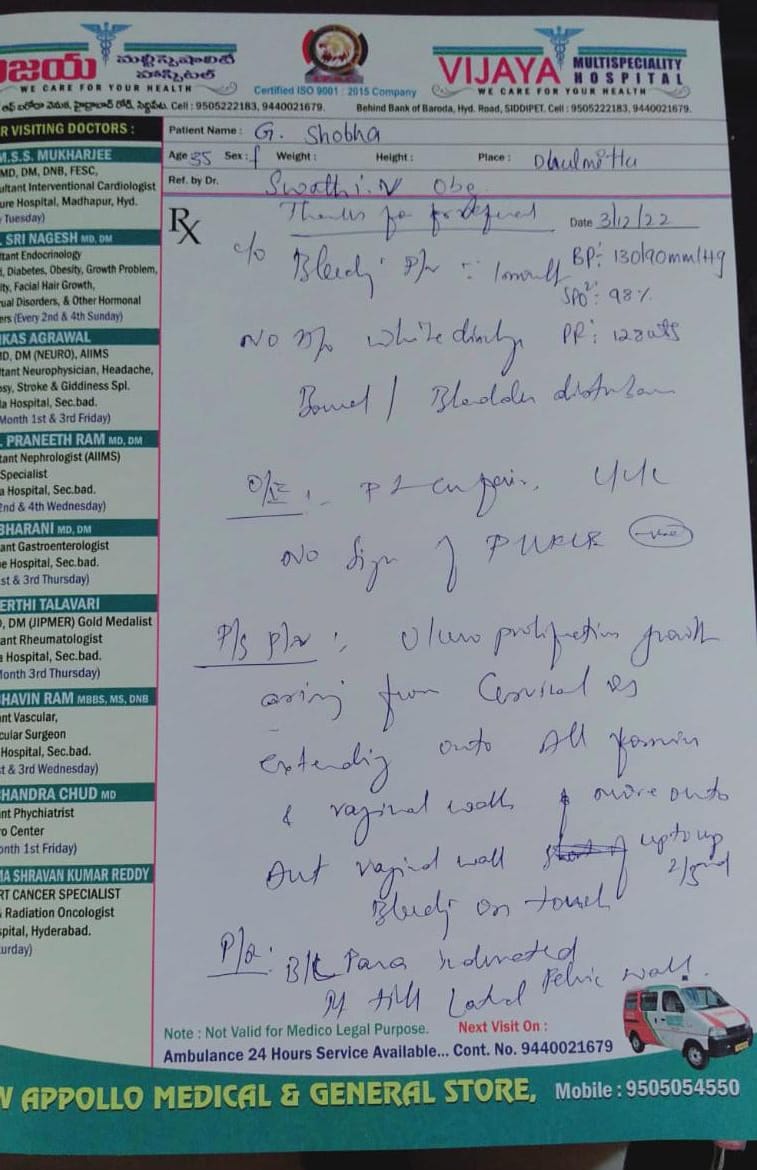 విజయ మల్టీస్పెషాలిటీ హాస్పిటల్
WE CARE FOR YOUR HEALTH
Certified ISO 9001 : 2015 Company
VIJAYA MULTISPECIALITY HOSPITAL
WE CARE FOR YOUR HEALTH
Cell : 9505222183, 9440021679. Behind Bank of Baroda, Hyd. Road, SIDDIPET. Cell : 9505222183, 9440021679.
R VISITING DOCTORS :
M.S.S. MUKHARJEE
MD, DM, DNB, FESC,
ultant Interventional Cardiologist
ure Hospital, Madhapur, Hyd.
Tuesday)
SRI NAGESH MD, DM
tant Endocrinology
, Diabetes, Obesity, Growth Problem,
ity, Facial Hair Growth,
ual Disorders, & Other Hormonal
ers (Every 2nd & 4th Sunday)
KAS AGRAWAL
D, DM (NEURO), AIIMS
tant Neurophysician, Headache,
sy, Stroke & Giddiness Spl.
a Hospital, Sec.bad.
Month 1st & 3rd Friday)
. PRANEETH RAM MD, DM
tant Nephrologist (AIIMS)
Specialist
a Hospital, Sec.bad.
2nd & 4th Wednesday)
BHARANI MD, DM
ant Gastroenterologist
e Hospital, Sec.bad.
st & 3rd Thursday)
EERTHI TALAVARI
, DM (JIPMER) Gold Medalist
ant Rheumatologist
a Hospital, Sec.bad.
Month 3rd Thursday)
HAVIN RAM MBBS, MS, DNB
nt Vascular,
cular Surgeon
Hospital, Sec.bad.
t & 3rd Wednesday)
HANDRA CHUD MD
nt Phychiatrist
ro Center
onth 1st Friday)
A SHRAVAN KUMAR REDDY
RT CANCER SPECIALIST
Radiation Oncologist
spital, Hyderabad.
urday)
Patient Name : G. Shobha
Age 35 Sex : f Weight : Height : Place :
Ref. by Dr. Swathi.N
Rx Thanks for Date 3/12/22
c/o Bleeding P/v BP: 130/90mm/Hg
SPO2: 98%
No H/o white PR:
Bowel / Bladder
O/E :
No sign of
P/s P/v : growth
arising from Cervical
Extending onto All
& vaginal walls & more onto
Ant vaginal wall upto up
2/3rd
Bleeding on touch
B/L Para
till Pelvic wall.
Note : Not Valid for Medico Legal Purpose. Next Visit On :
Ambulance 24 Hours Service Available... Cont. No. 9440021679
W APPOLLO MEDICAL & GENERAL STORE, Mobile : 9505054550